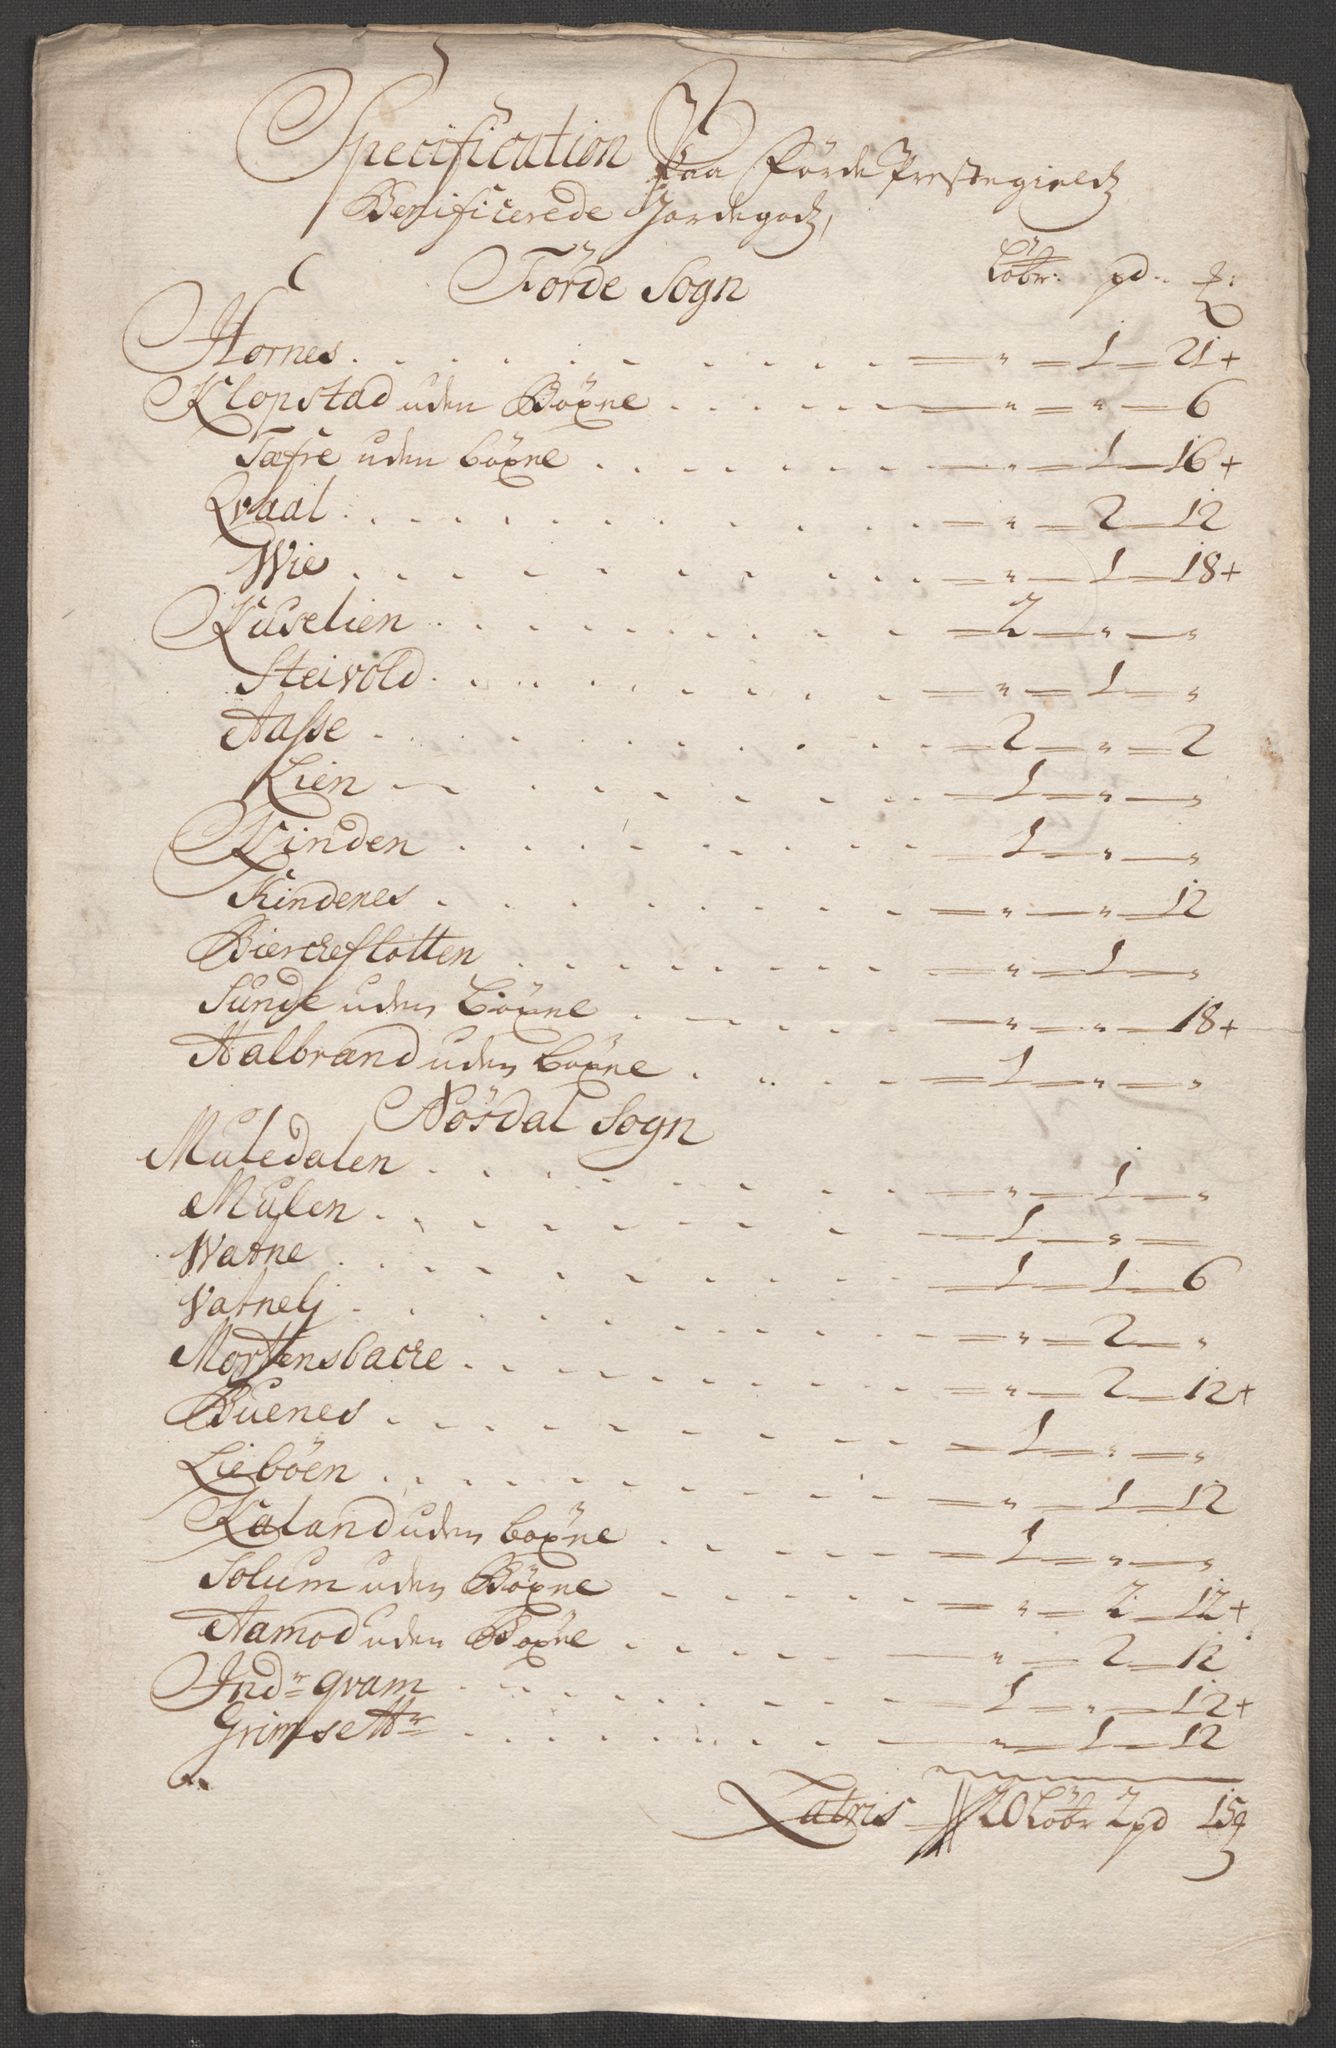 Specification Paa Förde Prestegieldz
Benificerede Jordegodz,
Förde Sogn Löbr: pd..
Hornes . . . " 1 21+
Klopstad uden Böxne . . . " " 6
Tæfre uden böxne . . . " 1 16+
Qvaal . . . " 2 12
Wie . . . " 1 18+
Kuselien . . . 2 " "
Steivold . . . " 1 "
Aasse . . . 2 " 2
Lien . . . 1 " "
Kinden . . . 1 " "
Kindenes . . . " " 12
Bierckeflotten . . . " 1 "
Sunde uden Böxne . . . " " 18+
Halbrænd uden böxne . . . 1 " "
Nösdal Sogn
Muledalen . . . " 1 "
Mulen . . . 1 "
Watne . . . 1 1 6
Vatnelj . . . " 2 "
Mortensbacke . . . " 2 12+
Buenes . . . 1 " "
Lieböen . . . " 1 12
Kaland uden böxne . . . 1 " "
Solum uden Böxne . . . " 2 12+
Aamod uden Böxne . . . " 2 12
Indr gvam . . . 1 " 12+
Grimsettr . . . " 1 12
Latris 20 Löbr 2 pd 15